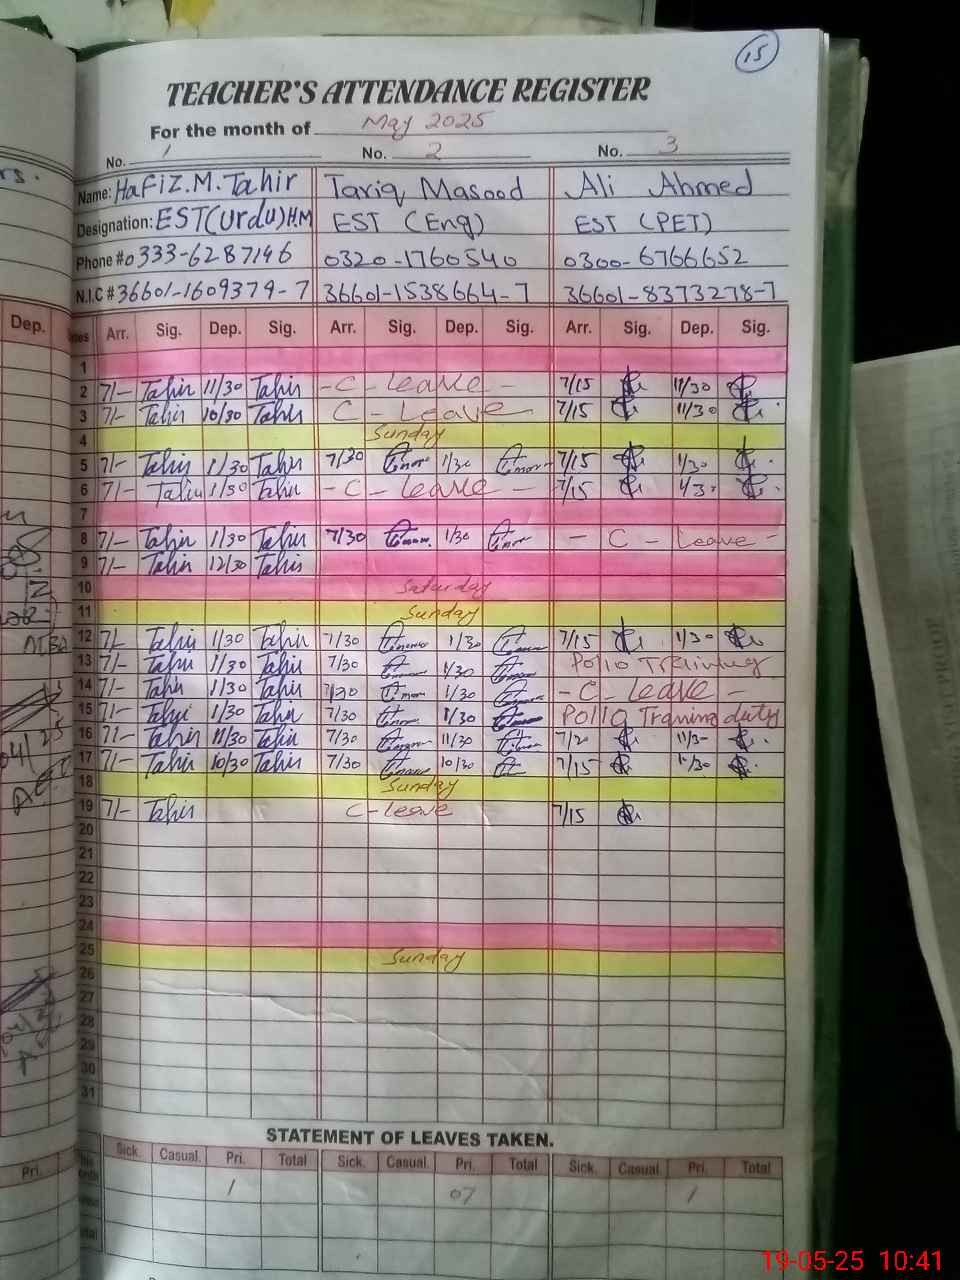 15
TEACHER'S ATTENDANCE REGISTER
For the month of May 2025
No. 1 No. 2 No. 3
Name: Hafiz.M.Tahir Tariq Masood Ali Ahmed
Designation: EST(Urdu)H.M EST (Eng) EST (PET)
Phone # 0333-6287146 0320-1760540 0300-6766652
N.I.C # 36601-1609379-7 36601-1538664-7 36601-8373278-7
Dep. Arr. Sig. Dep. Sig. Arr. Sig. Dep. Sig. Arr. Sig. Dep. Sig.
1
2 7/- Tahir 11/30 Tahir - C - Leave - 7/15 11/30
3 7/- Tahir 10/30 Tahir C - Leave 7/15 11/30
4 Sunday
5 7/- Tahir 1/30 Tahir 7/30 1/30 7/15 1/30
6 7/- Tahir 1/30 Tahir - C - Leave - 7/15 1/30
7
8 7/- Tahir 1/30 Tahir 7/30 1/30 - C - Leave -
9 7/- Tahir 12/30 Tahir
10 Saturday
11 Sunday
12 7/- Tahir 1/30 Tahir 7/30 1/30 7/15 1/30
13 7/- Tahir 1/30 Tahir 7/30 1/30 Polio Training
14 7/- Tahir 1/30 Tahir 7/30 1/30 - C - Leave -
15 7/- Tahir 1/30 Tahir 7/30 1/30 Polio Traning duty
16 7/- Tahir 11/30 Tahir 7/30 11/30 7/20 11/30
17 7/- Tahir 10/30 Tahir 7/30 10/30 7/15 11/30
18 Sunday
19 7/- Tahir C-Leave 7/15
20
21
22
23
24
25 Sunday
26
27
28
29
30
31
STATEMENT OF LEAVES TAKEN.
Pri. Sick. Casual. Pri. Total Sick. Casual Pri. Total Sick. Casual. Pri. Total
1 07 1
19-05-25 10:41